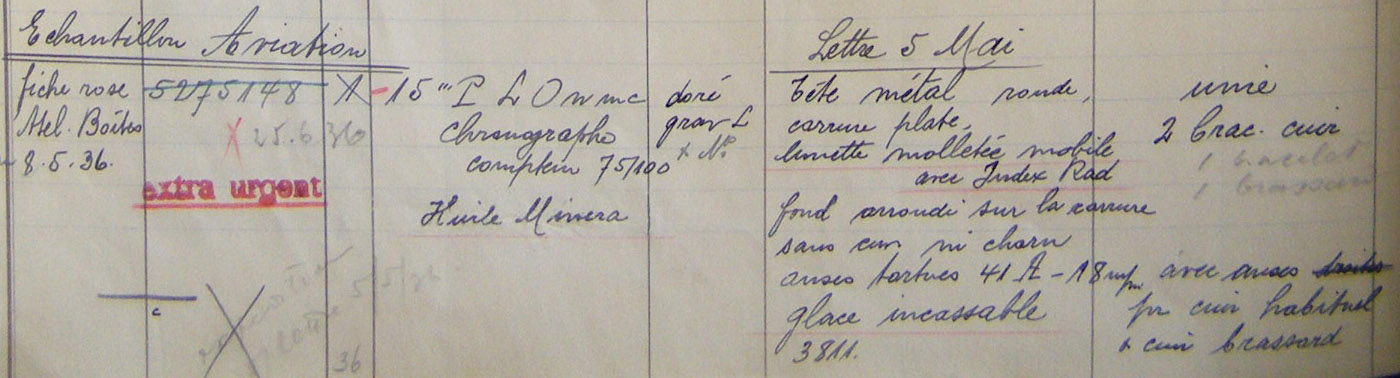 Echantillon Aviation
Lettre 5 Mai
fiche rose 5275148 A - 15 ''' P L O doré tête métal ronde, unie
Atel. Boîtes X 25.6.36 Chronographe grav L carrure plate, 2 brac. cuir
8.5.36. compteur 75/100 x No lunette molletée mobile 1 bracelet
extra urgent avec Index Rad 1 brassard
Huile Minera fond arrondi sur la carrure
sans cuv ni charn
anses tortues 41 A - 18 m/m avec anses droites
glace incassable pr cuir habituel
3811. + cuir brassard
36